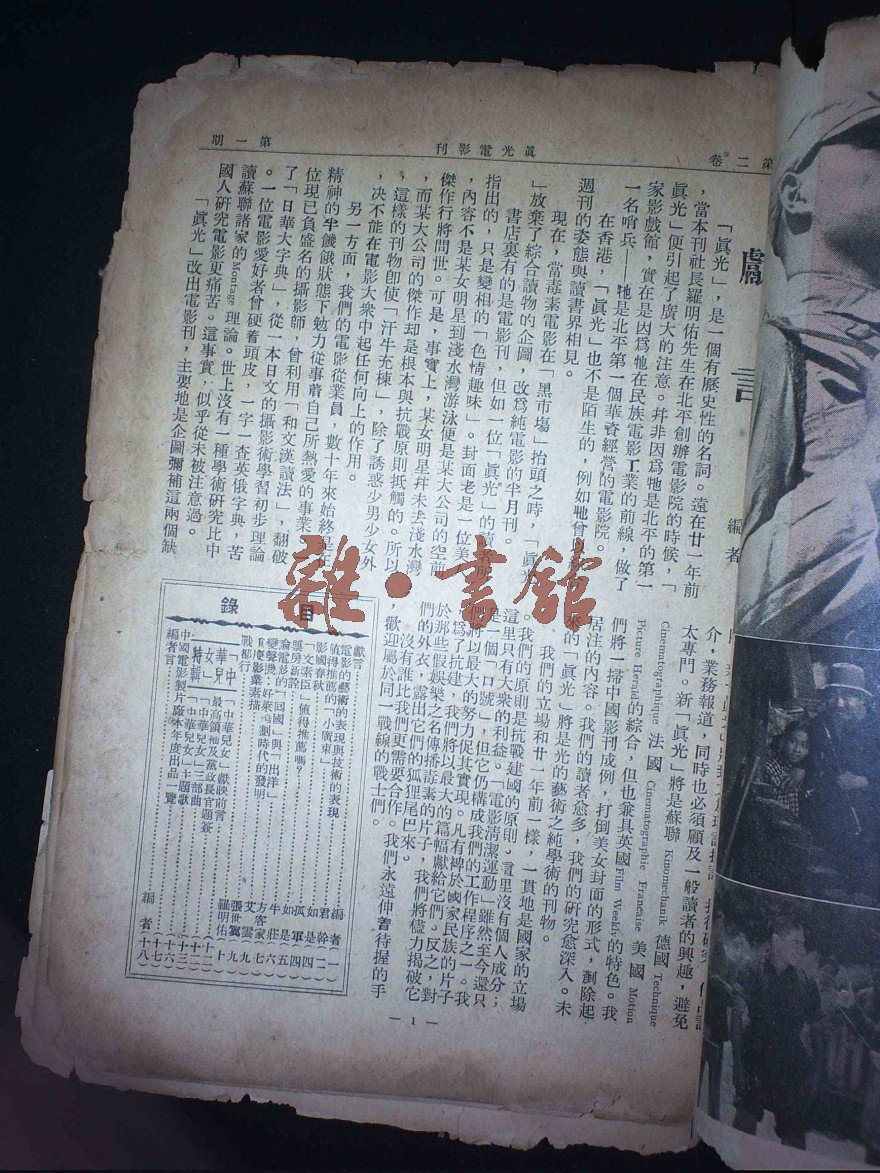 第二卷
眞光電影刊
第一期
獻言
編者
「眞光」，是一個有歷史性的名詞。遠在廿一年前
，當本刊社長羅明佑先生在北平創辦電影院的時候，「
眞光」便引起了廣大的注意。幷非因爲牠是北平的第一
家影戲館，實在是因爲牠在民族電影工業的前線，做了
一名哨兵——牠是北平第一個華資經營的電影院。
在香港，「眞光」也不是陌生的，例如牠曾以
週刊的姿態與讀書界相見。
現在，當毒素電影在「黑市場」抬頭之時，「眞光
」放棄了綜合讀物的企圖，改爲純電影的半月刊。
書店裏有的是電影刊，但如一位「眞光」的讀者所
指出的，只是變相的「色情趣味」。封面老是一位美
，內容不是某女明星到淺水灣游泳便是某大公司的空前
傑作行將問世。可是，事實上，某女明星幷未去淺水灣
，而某大公司的傑作却是根本與抗戰原則抵觸的。所以
，這樣的刊物卽使「汗牛充棟」，除了誘惑少男少女外
，决不能在電影大衆中起任何向上的作用。
另一方面，我們的電影從業員，數十年來始終是在
精神的半饑餓狀態下勉力從事著自己所熱愛的事業。一
位現已負盛名的攝影師，曾利用「和文漢讀法」，翻破
了「日華大字典」，從一本日文的攝影術學習初步理論
。一位電影愛好者曾硬着頭皮，一字一查英俄字典，苦
讀蘇聯諸家的Montage理論。世上沒有一種學術研究比中
國人研究電影更痛苦。這事實，似乎從未被注意過。
「眞光」改出電影刊，主要地是企圖彌補這兩個缺
介，業務報道，同時也必須顧及一般讀者的興趣，避免
太專門。新「眞光」將是蘇聯 Kinomechanik 德國 Technique
Cinematographique 法國 Cinematographie Francaise 美國 Motion
Picture Herald的綜合，但也兼具英國Film Weekly的特色。我
們將一掃中國影刊成例，打倒美女封面的形式，剷除起
居注的內容。我們的讀者愈多，我們的研究愈深入。未
來的「眞光」將是光的藝術之純學術的刊物。
我們的立場和廿一年前一樣，一貫地是國家的立場
。我們的原則是抗戰建國的原則。這里沒有個人成分；
這里只有大衆的利益。「電影清潔運動」雖然至今還只
是一個「口號」，但它仍構成我們的工作程序之一。我
們將以最大的努力促其實現。凡有裨於國家民族的片子
，爲了抗建，我們將以最大的篇幅獻給它們。反之，對
於那些假娛樂之名傳播毒素的片子，我們將儘力揭破它
們的外衣，露出它們的狐狸尾巴來。
沒有誰比我們更需要合作。我們永遠伸着待握的手
，歡迎屬於同一戰線的戰士們。
目錄
獻言……編者(一)
電影的藝術的表現與技術的表現……君幹(二)
值得推薦的「小廣東」……如是(四)
影國春秋……孤軍(四)
「文素臣」值得推薦嗎？……如是(五)
票房新論……牛莊(六)
論電影的「回國」與「出洋」……方客家(七)
變聲機，好萊塢劃時代的發明……艾雲(九)
重慶影業素描……張世翼(九)
戰都行……羅明佑(十)
「中華兒女」特輯
「中華兒女」獻映前言……(十二)
最高領袖及黨政長官題簽……(十三)
「中華兒女」三部曲……(十六)
「中華兒女」主題歌……(十六)
中國電影製片廠本年度出品一覽……(十七)
編者言……編者(十八)
— 1 —
雜·書館